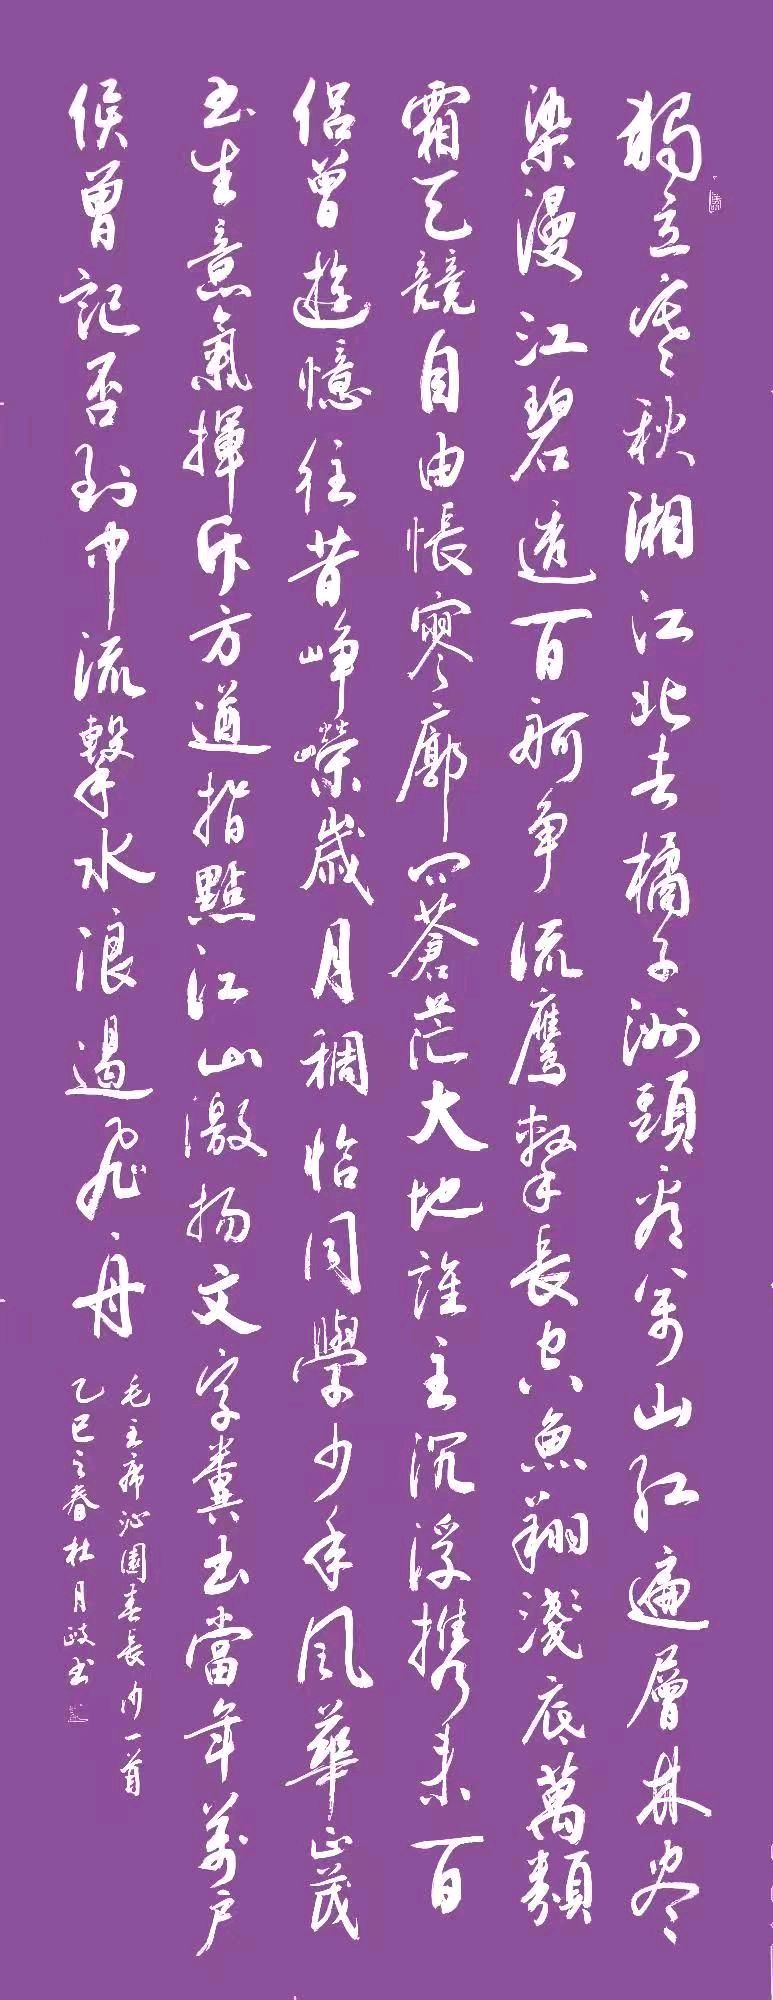 獨立寒秋湘江北去橘子洲頭看萬山红遍層林尽
染漫江碧透百舸争流鷹擊長空魚翔淺底萬類
霜天競自由悵寥廓問蒼茫大地誰主沉浮携来百
侣曾遊憶往昔峥嶸歲月稠恰同學少年风華正茂
书生意氣揮斥方遒指點江山激扬文字糞土當年萬户
侯曾記否到中流擊水浪遏飛舟
毛主席沁園春長沙一首
乙巳之春杜月歧书